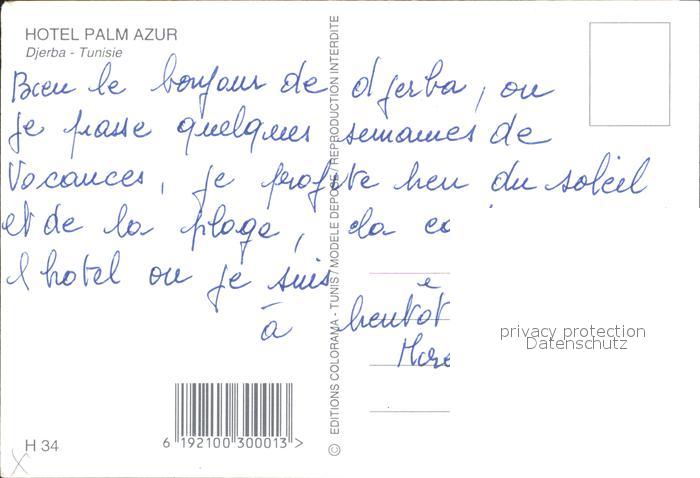 HOTEL PALM AZUR
Djerba - Tunisie
Bien le bonjour de djerba, ou
je passe quelques semaines de
vacances, je profite bien du soleil
et de la plage, da co
l hotel ou je suis
à bientôt
© EDITIONS COLORAMA - TUNIS / MODELE DEPOSE / REPRODUCTION INTERDITE
privacy protection
Datenschutz
H 34
6 192100 300013 >